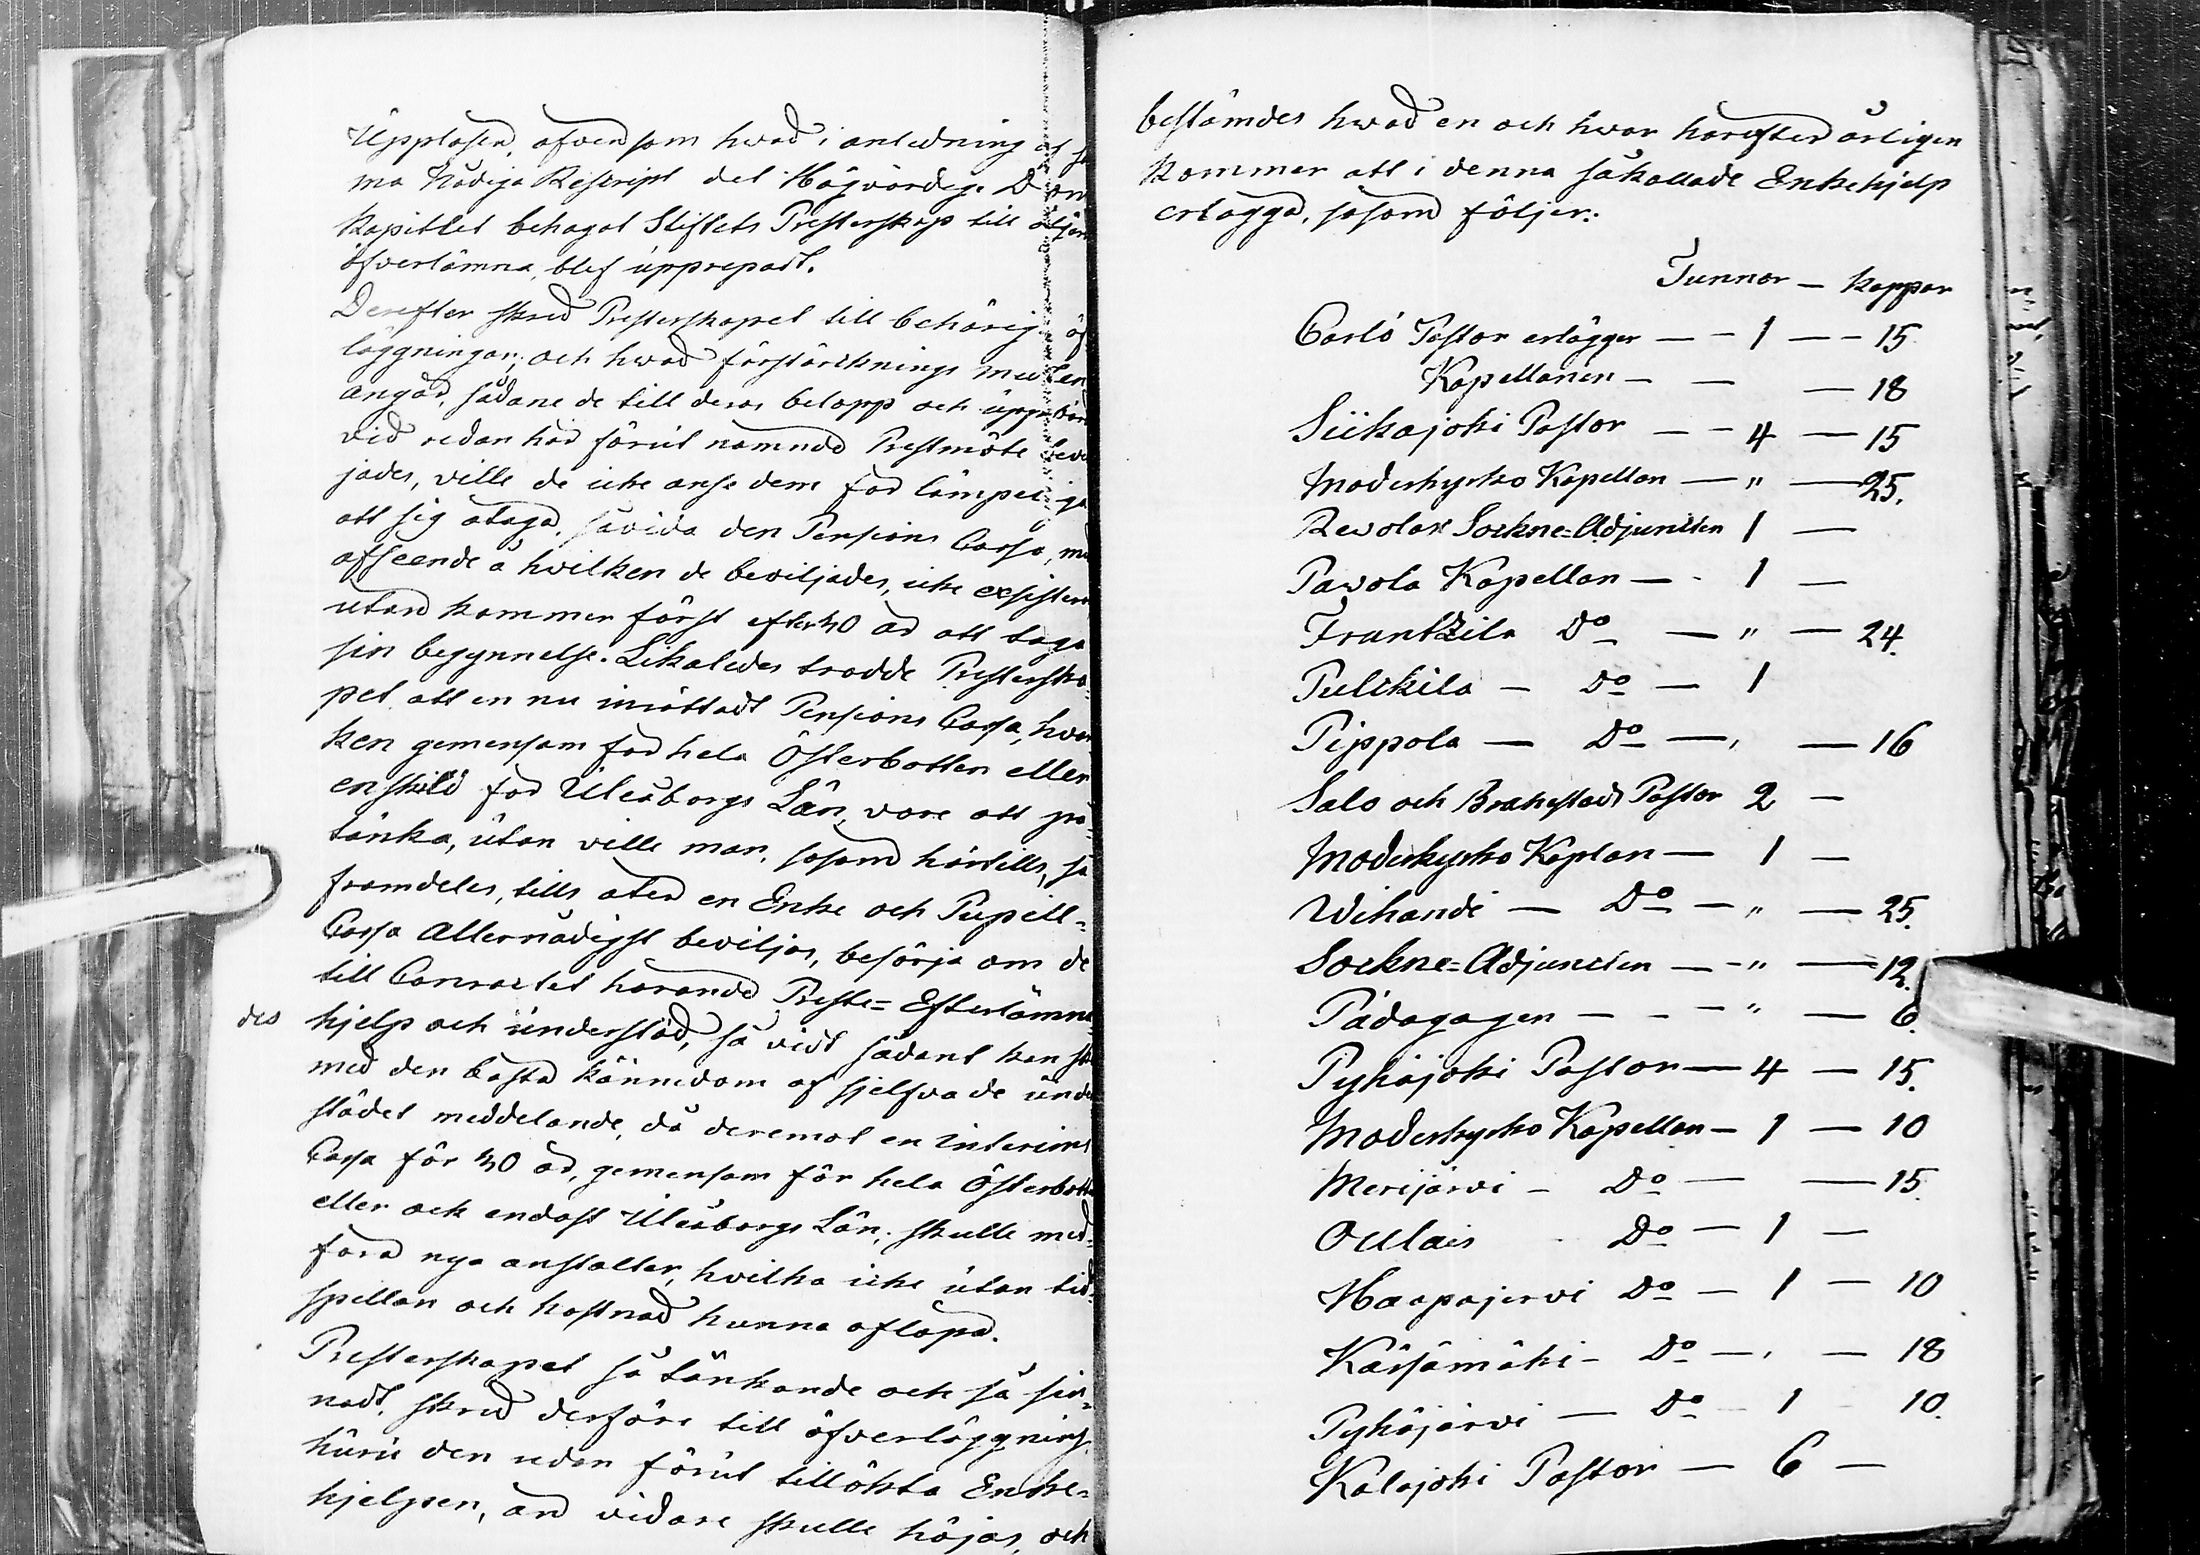 Upplasen, äfvensom hwad i anledning af sa
ma Nådiga Rescript det Högvördige Dom
kapitlet behagat Stiftets Presterskap till
öfverlämna, blef upprepadt.
Derefter skred Presterskapet till behörig öf
läggningar, och hwad förstärknings med
angår, sådane de till deras belopp och uppbörd
vid redan här förut nämnde Prestmöte bevil
jades, ville de icke anse dem för lämpeliga
att sig åtaga, såvida den Pensions Cassa, med
afseende å hvilken de beviljades, icke existera
utan kommer först efter 40 år att taga
sin begynnelse. Likaledes trodde Presterska-
pet att en nu inrättadt Pensions Cassa, hvar
ken gemensam för hela Österbotten eller
enskild för Uleåborgs Län, vore att på-
tänka, utan ville man, såsom härtills, så
framdeles, tills åter en Enke och Pupill-
Cassa Allernådigst beviljas, besörja om de
till Contractet hörande Preste-Efterlämna-
des hjelp och understöd, så vidt sådant kan ske
med den bästa kännedom af sjelfva de under
stödet meddelande, då deremot en interims
Cassa för 40 år, gemensam för hela Österbotten
eller ock endast Uleåborgs Län, skulle med-
föra nya anstalter, hvilka icke utan tid-
spillan och kostnad kunna aflöpa.
Presterskapet så tänkande och så sin-
nadt, skred derföre till öfverläggning
huru den redan förut tillökta Enke-
hjelpen, än vidare skulle höjas, och
bestämdes hwad en och hwar härefter årligen
kommer att i denna såkallade Enkehjelp
erlägga, såsom följer:
Tunnor — Kappar
Carlö Pastor erlägger — - 1 — - 15
Kapellanen — — — 18
Siikajoki Pastor — - 4 — 15
Moderkyrko Kapellan — " — 25.
Revolax Sockne-Adjuncten 1 —
Pavola Kapellan — - 1 —
Frantzila Do — " — 24.
Pulkkila — Do — 1
Pippola — Do — " — 16
Salo och Brahestads Pastor 2 —
Moderkyrko Kaplan — 1 —
Wihandi — Do — " — 25.
Sockne-Adjuncten — - " — 12.
Pädagogen — - - " — 6.
Pyhäjoki Pastor — 4 — 15.
Moderkyrko Kapellan — 1 — 10
Merijärvi - Do — — 15.
Oulais - Do — 1 —
Haapajervi Do — 1 — 10
Kärsämäki - Do — " — 18
Pyhäjärvi — Do - 1 - 10.
Kalajoki Pastor — 6 —